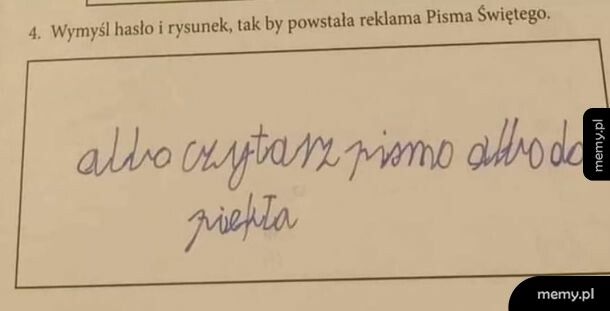 4. Wymyśl hasło i rysunek, tak by powstała reklama Pisma Świętego.
albo czytarz pismo albo do
piekła
memy.pl
memy.pl